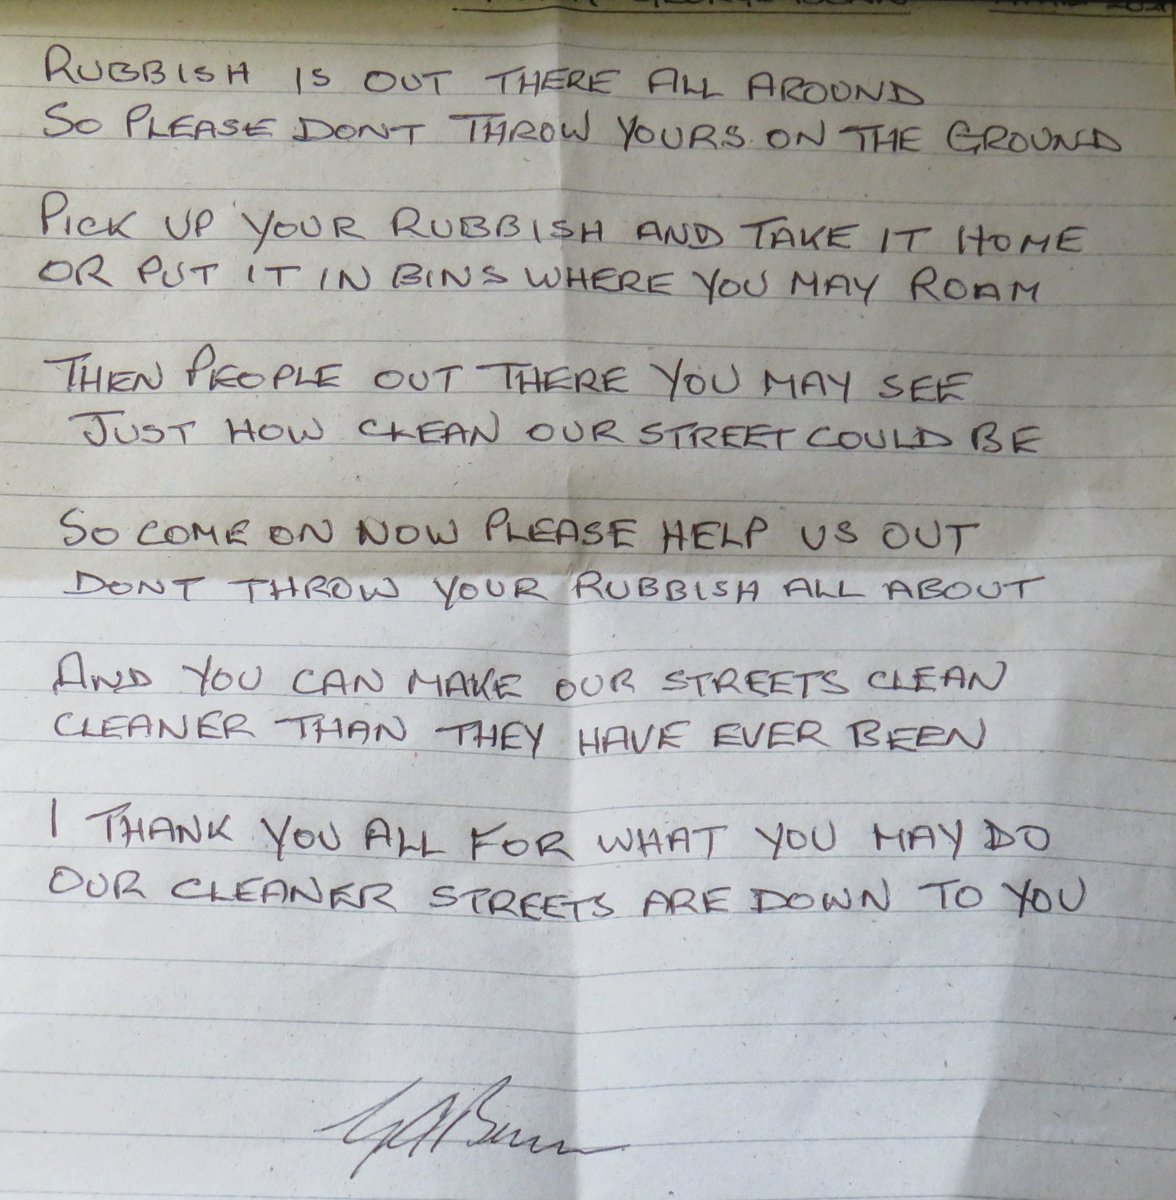 RUBBISH IS OUT THERE ALL AROUND
SO PLEASE DONT THROW YOURS ON THE GROUND
PICK UP YOUR RUBBISH AND TAKE IT HOME
OR PUT IT IN BINS WHERE YOU MAY ROAM
THEN PEOPLE OUT THERE YOU MAY SEE
JUST HOW CLEAN OUR STREET COULD BE
SO COME ON NOW PLEASE HELP US OUT
DONT THROW YOUR RUBBISH ALL ABOUT
AND YOU CAN MAKE OUR STREETS CLEAN
CLEANER THAN THEY HAVE EVER BEEN
I THANK YOU ALL FOR WHAT YOU MAY DO
OUR CLEANER STREETS ARE DOWN TO YOU